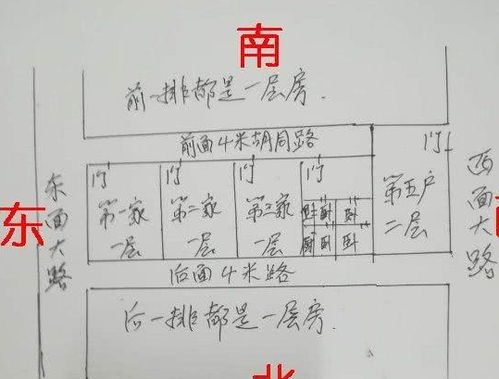 南
前一排都是一层房.
前面4米胡同路
门
门
门
门
门
东
东面大路
第一家
一层
第二家
一层
第三家
一层
卧
卧
厨
卧
卧
第五户
二层
西面大路
后面4米路
后一排都是一层房.
北